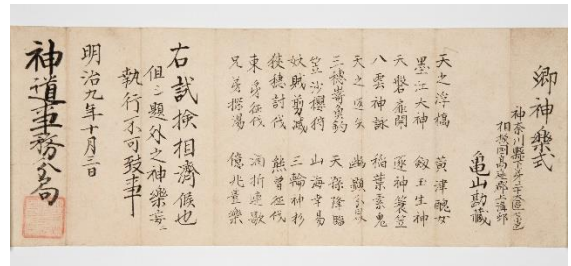 卿神楽式
神奈川縣
相模國高座郡上溝邨
亀山勘蔵
天之浮橋 黄津醜女
墨江大神 劔玉生神
天磐扉開 逐神簑笠
八雲神詠 稲葉素兎
天之返矢 幽顕分界
三穂崎魚釣 天孫降臨
笠沙櫻狩 山海幸易
妖賊剪滅 三輪神杉
狭穂討伐 熊曾征伐
東夷征伐 酒折連歌
兄弟探湯 億兆豊楽
右試検相濟候也
但シ題外之神樂
執行不可致事
明治九年十月三日
神道事務分局